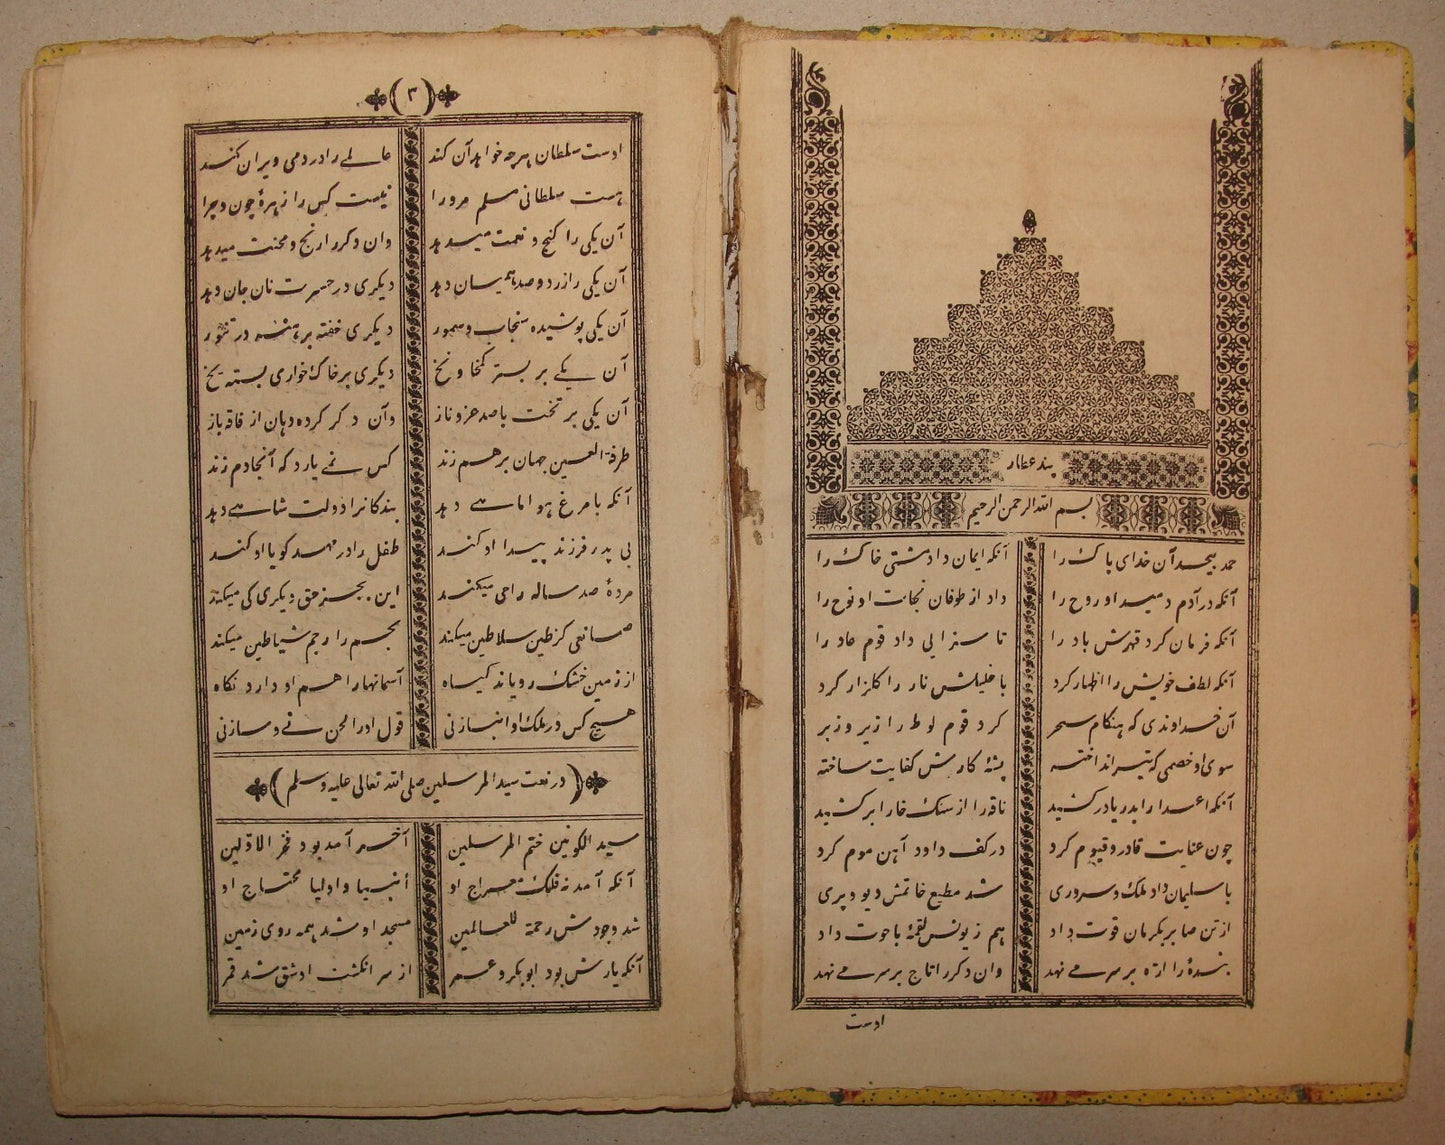 پند عطار
بسم الله الرحمن الرحیم
حمد بیحد آن خدای پاک را آنکه ایمان داد مشتی خاک را
آنکه در آدم دمید او روح را داد از طوفان نجات او نوح را
آنکه فرمان کرد قهرش باد را تا سزایی داد قوم عاد را
آنکه لطف خویش را اظهار کرد با خلیلش نار را گلزار کرد
آن خداوندی که هنگام سحر کرد قوم لوط را زیر و زبر
سوی او خصمی که تیر انداخته پشهٔ کارش کفایت ساخته
آنکه اعدا را بدریا در کشید ناقه را از سنگ خارا بر کشید
چون عنایت قادر و قیوم کرد در کف داود آهن موم کرد
با سلیمان داد ملک و سروری شد مطیع خاتمش دیو و پری
از تن صابر بکرمان قوت داد هم ز یونس لقمهٔ با حوت داد
بندهٔ را اره بر سر می نهد وان دگر را تاج بر سر می نهد
اوست
۳
اوست سلطان هرچه خواهد آن کند عالمے را در دمی ویران کند
هست سلطانی مسلم مرورا نیست کس را زهرهٔ چون و چرا
آن یکی را گنج و نعمت میدهد وان دگر را رنج و محنت میدهد
آن یکی را زر دو صد همیان دهد دیگری در حسرت نان جان دهد
آن یکی پوشیده سنجاب و سمور دیگری خفته برهنه در تنور
آن یکے بر بستر کمخا و نخ دیگری بر خاک خواری بسته یخ
آن یکی بر تخت با صد عز و ناز وآن دگر کرده دهان از فاقه باز
طرفة العین جهان برهم زند کس نمے یارد که آنجا دم زند
آنکه با مرغ هوا ماهے دهد بندگانرا دولت شاهے دهد
بی پدر فرزند پیدا او کند طفل را در مهد گویا او کند
مردهٔ صد ساله را حی میکند این بجز حق دیگری کی میکند
صانعی کز طین سلاطین میکند نجم را رجم شیاطین میکند
از زمین خشک رویاند گیاه آسمانها را هم او دارد نگاه
هیچ کس در ملک او انباز نی قول او را لحن نے و ساز نی
در نعت سید المرسلین صلی الله تعالی علیه وسلم
سید الکونین ختم المرسلین آخر آمد بود فخر الاولین
آنکه آمد نه فلک معراج او انبیا و اولیا محتاج او
شد وجودش رحمة للعالمین مسجد او شد همه روی زمین
آنکه یارش بود ابوبکر و عمر از سر انگشت او شق شد قمر